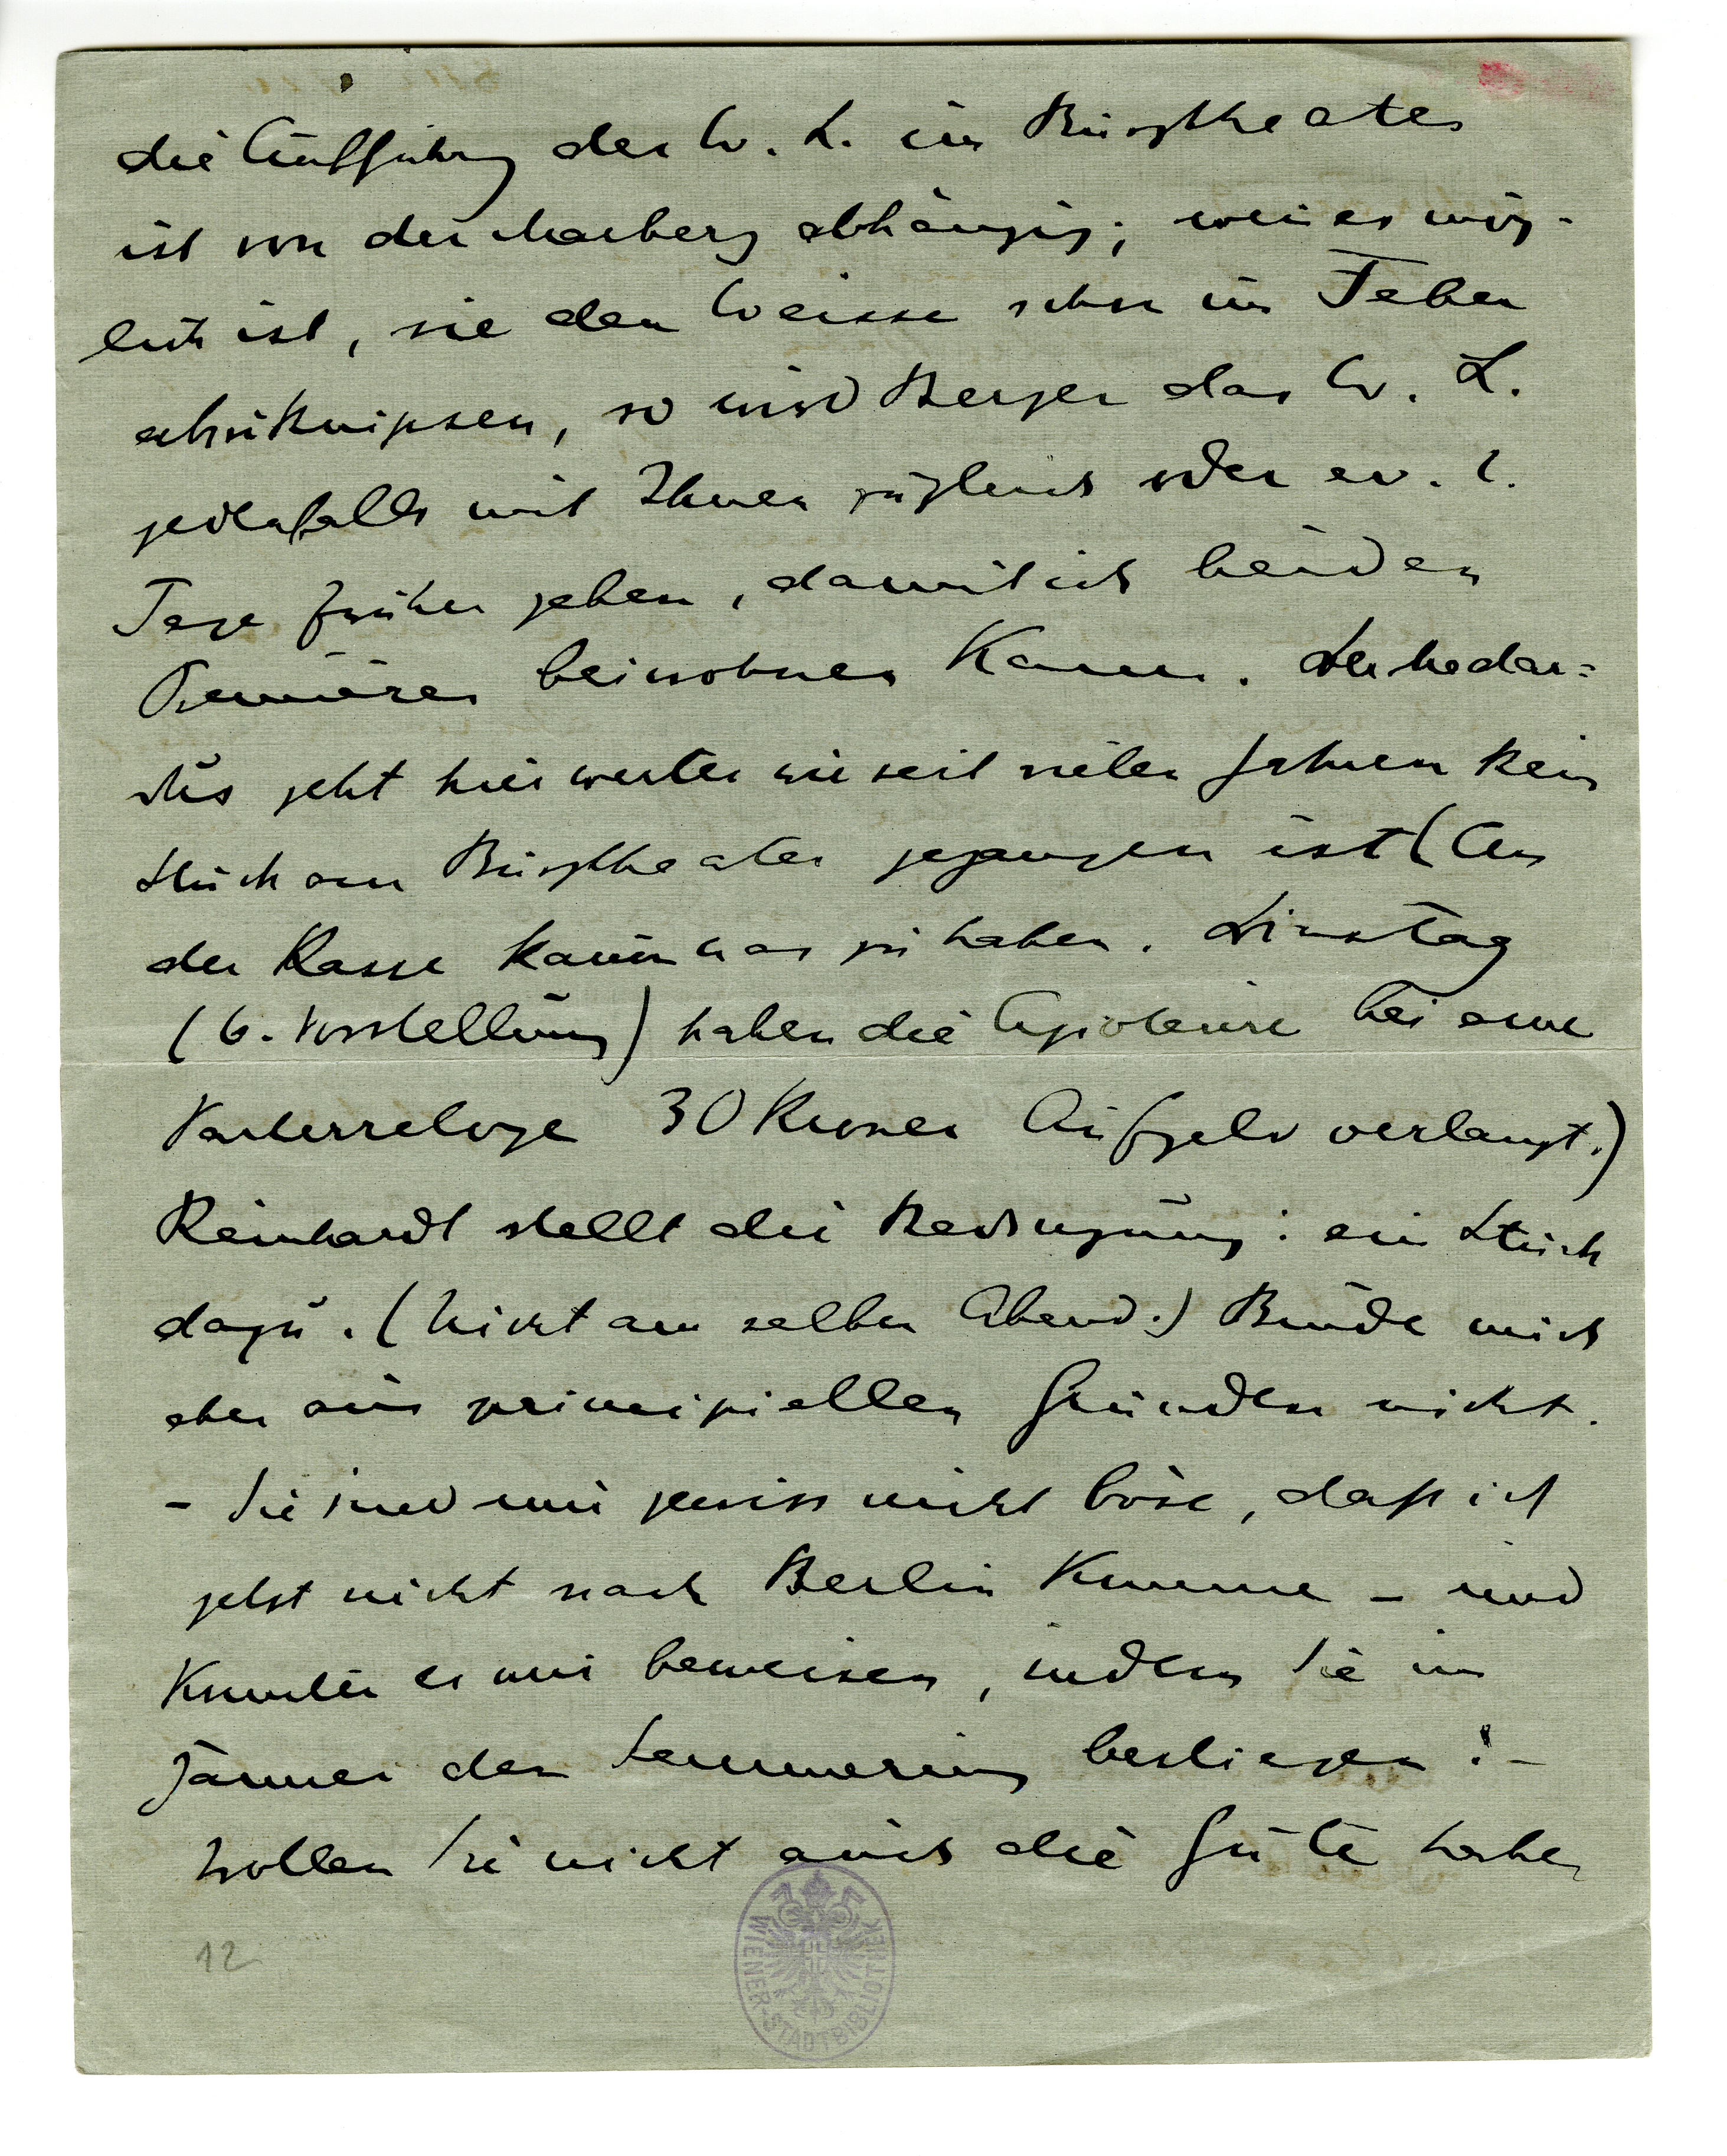 die Aufführung des W. L. im Burgtheater
ist von der Marberg abhängig; wenn es mög-
lich ist, sie dem Weisse schon im Feber
abzuknipsen, so wird Berger das W. L.
jedenfalls mit Ihnen zugleich oder ev. 2.
Tage früher geben, damit ich beiden
Premièren beiwohnen kann. Der Medar=
dus geht hier weiter wie seit vielen Jahren kein
Stück am Burgtheater gegangen ist (An
der Kasse kaum was zu haben. Dinstag
(6. Vorstellung) haben die Agioteure bei einer
Parterreloge 30 Kronen Aufgeld verlangt.)
Reinhardt stellt die Bedingung: ein Stück
dazu. (Nicht am selben Abend.) Binde mich
aber aus principiellen Gründen nicht.
– Sie sind mir gewiss nicht böse, daß ich
jetzt nicht nach Berlin komme – und
könnten es mir beweisen, indem Sie im
Jänner den Semmering besteigen! –
Wollen Sie nicht auch die Güte haben
12
WIENER-STADTBIBLIOTHEK